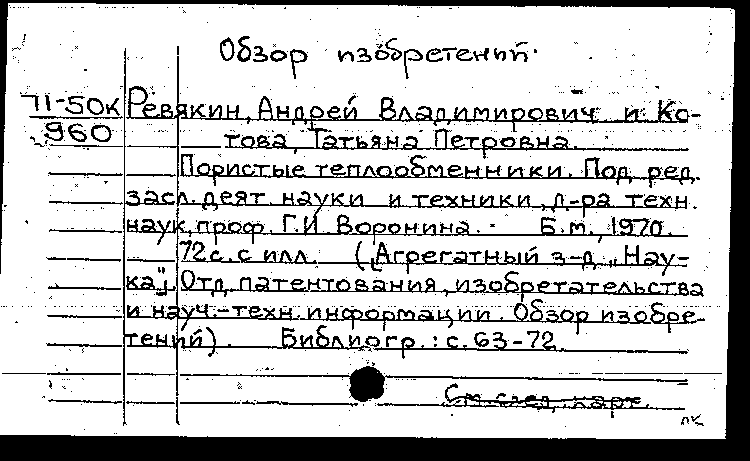 Обзор изобретений.
71-50К Ревякин, Андрей Владимирович и Ко-
960 това, Татьяна Петровна.
Пористые теплообменники. Под ред.
засл. деят. науки и техники, д-ра техн.
наук, проф. Г.И. Воронина. - Б.м., 1970.
72 с. с илл. ([Агрегатный з-д „Нау-
ка"]. Отд. патентования, изобретательства
и науч.-техн. информации. Обзор изобре-
тений). Библиогр.: с. 63-72.
См. след. карт.